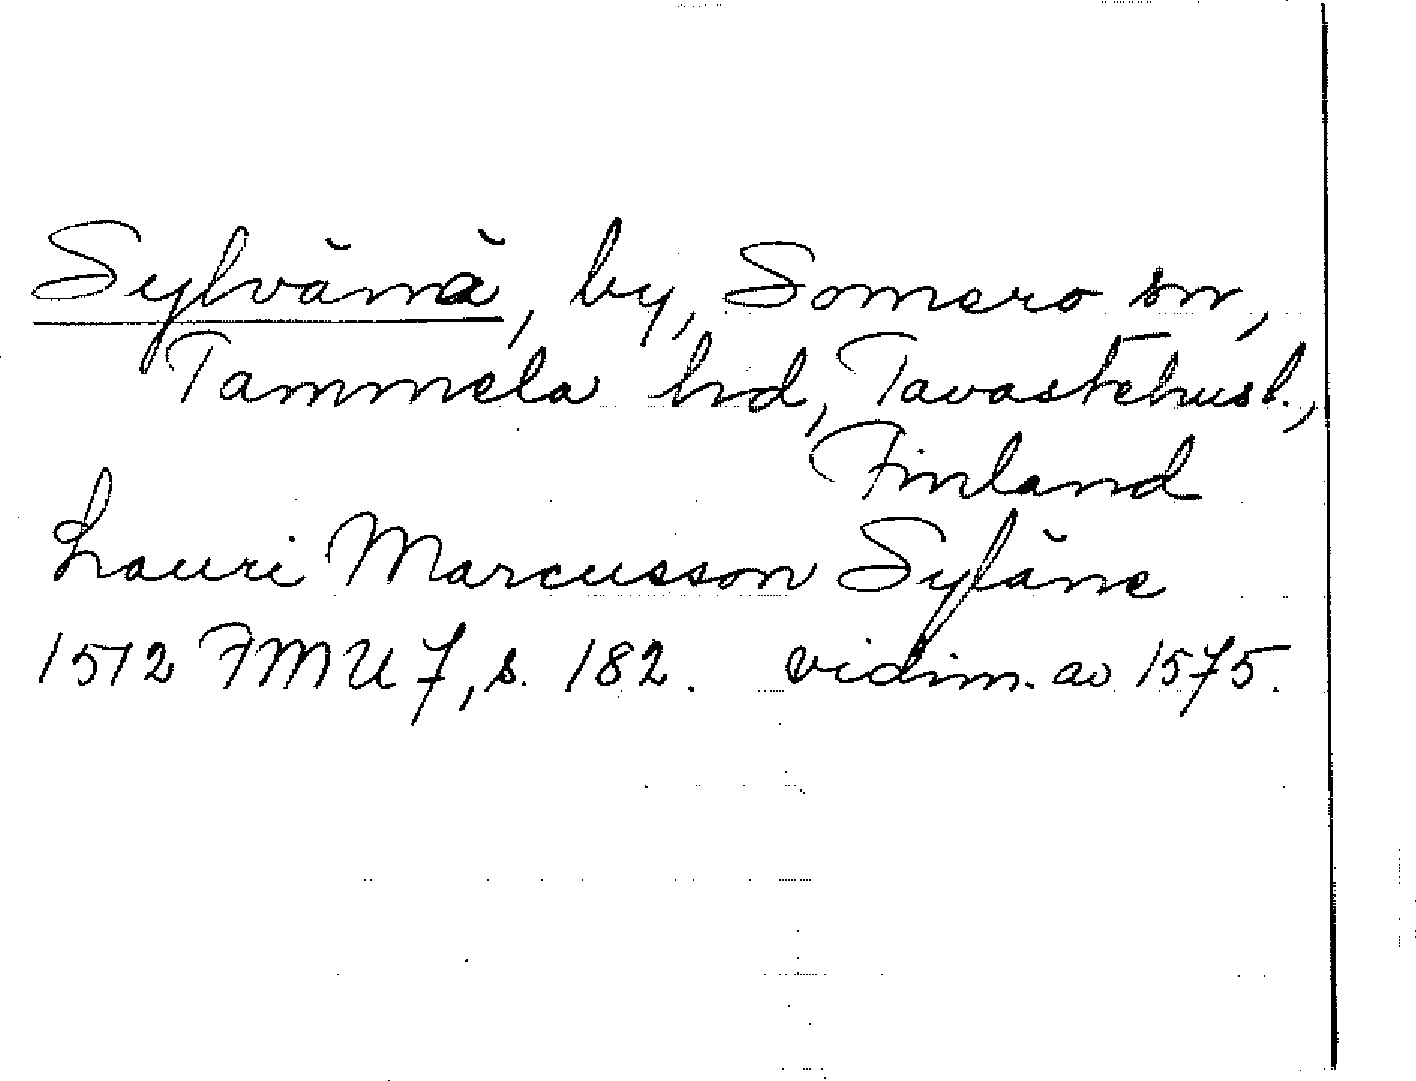 Sylvänä, by, Somero sn,
Tammela hd, Tavastehus l.,
Finland
Lauri Marcusson Syläne
1512 FMU 7, s. 182. vidim. av 1575.